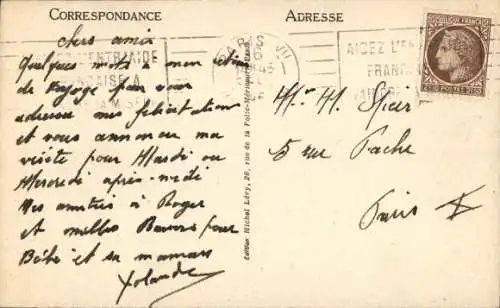 CORRESPONDANCE
chers amis
Quelques mots à mon
de voyage pour vous
adresser mes félicitations
et vous annoncer ma
visite pour Mardi ou
Mercredi après-midi
Mes amitiés à Roger
et milles Baisers pour
Bébé et sa maman
Yolande
Edition Michel Lévy, 26, rue de la Folie-Méricourt, Paris
ADRESSE
PARIS VII
45
L'ENTR'AIDE
FRANÇAISE A
LA MISÈRE
AIDEZ L'EN
FRAN
REPUBLIQUE FRANÇAISE
POSTES
Mr M.
5 rue Pache
Paris